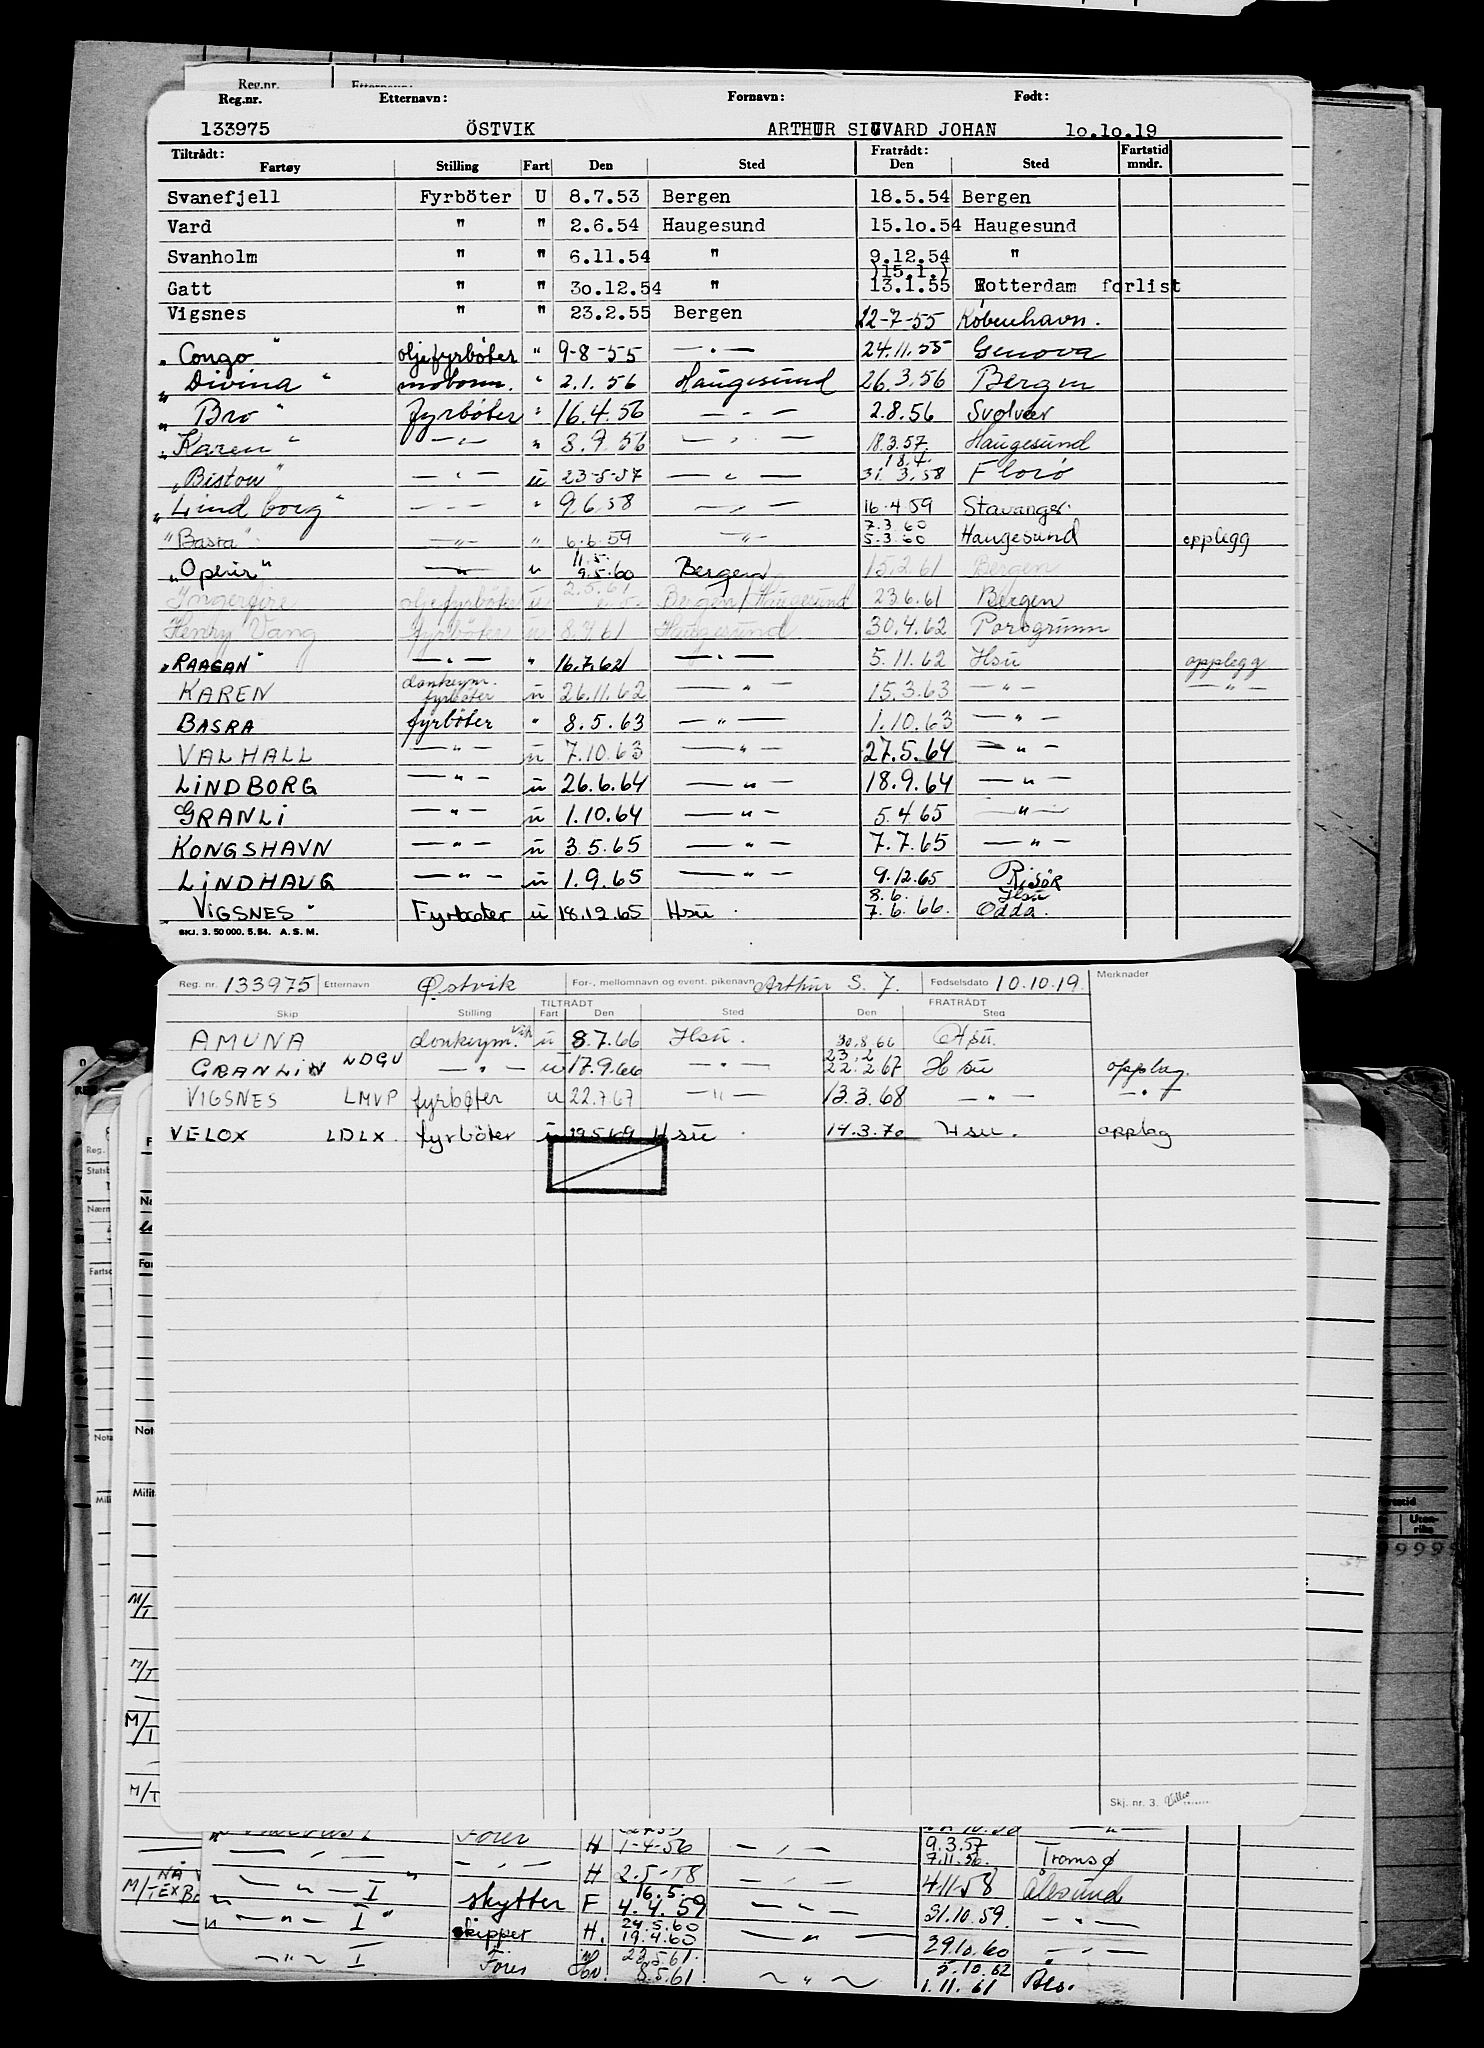 Reg.nr. Etternavn:
Reg.nr. Etternavn: Fornavn: Født:
133975 ÖSTVIK ARTHUR SIGVARD JOHAN 1o.1o.19
Tiltrådt: Fratrådt: Fartstid
Fartøy Stilling Fart Den Sted Den Sted mndr.
Svanefjell Fyrböter U 8.7.53 Bergen 18.5.54 Bergen
Vard " " 2.6.54 Haugesund 15.1o.54 Haugesund
Svanholm " " 6.11.54 " 9.12.54 "
)15.1.)
Gatt " " 3o.12.54 " 13.1.55 Rotterdam forlist
Vigsnes " " 23.2.55 Bergen 22-7-55 København.
"Congo" oljefyrbøter " 9-8-55 — " — 24.11.55 Genova
"Divina" motorm. " 2.1.56 Haugesund 26.3.56 Bergen
"Bro" fyrbøter " 16.4.56 — " — 2.8.56 Svolvær
"Karen" — " — " 8.9.56 — " — 18.3.57 Haugesund
18.4.
"Biston" — " — u 23-5-57 — " — 31.3.58 Florø
"Lindborg" — " — " 9.6.58 — " — 16.4.59 Stavanger.
7.3.60
"Basra" — " — " 6.6.59 — " — 5.3.60 Haugesund opplegg
11.5.
— " — u 9.5.60 Bergen 15.2.61 Bergen
2.5.61
Ingerfire oljefyrbøter u Bergen/Haugesund 23.6.61 Bergen
Henry Vang fyrbøter u 8.7.61 Haugesund 30.4.62 Porsgrunn
"RAAGAN" — " — " 16.7.62 — " — 5.11.62 Hsu opplegg
donkeym.
KAREN fyrbøter u 26.11.62 — " — 15.3.63 — " — — " —
BASRA fyrböter " 8.5.63 — " — 1.10.63 — " —
VALHALL — " — u 7.10.63 — " — 27.5.64 — " —
LINDBORG — " — u 26.6.64 — " — 18.9.64 — " —
GRANLI — " — u 1.10.64 — " — 5.4.65 — " —
KONGSHAVN — " — u 3.5.65 — " — 7.7.65 — " —
LINDHAUG — " — u 1.9.65 — " — 9.12.65 Risör
8.6. Hsu
"VIGSNES" Fyrbøter u 18.12.65 Hsu. 7.6.66. Odda.
SKJ. 3. 50 000. 5. 54. A. S. M.
Reg. nr. 133975 Etternavn Østvik For-, mellomnavn og event. pikenavn Arthur S. J. Fødselsdato 10.10.19. Merknader
TILTRÅDT FRATRÅDT
Skip Stilling Fart Den Sted Den Sted
AMUNA donkeym. Vik u 8.7.66 Hsu. 30.8.66 Hsu.
23.2
GRANLI LDGU — " — u 17.9.66 — " — 22.2.67 Hsu opplag.
VIGSNES LMVP fyrbøter u 22.7.67 — " — 13.3.68 — " — — " —
VELOX LDLX. fyrböter u 29.5.69 Hsu. 14.3.70 Hsu. opplag
Skj. nr. 3.
Fører H 1-4-56 — " — 9.3.57
7.11.56. Tromsø
— " — H 2.5-58 — " — 4-11-58 Ålesund
16.5.
— " — I" skytter F 4.4.59 — " — 31.10.59. — " —
24.5.60
— " — I" skipper H. 19.4.60 — " — 29.10.60 — " —
23.5.61. 5.10.62
— " — I Fører 8.5.61. — " — 1.11.61 Åls.
M/T
M/T
M/T
M/T
Uten-
riks
9999